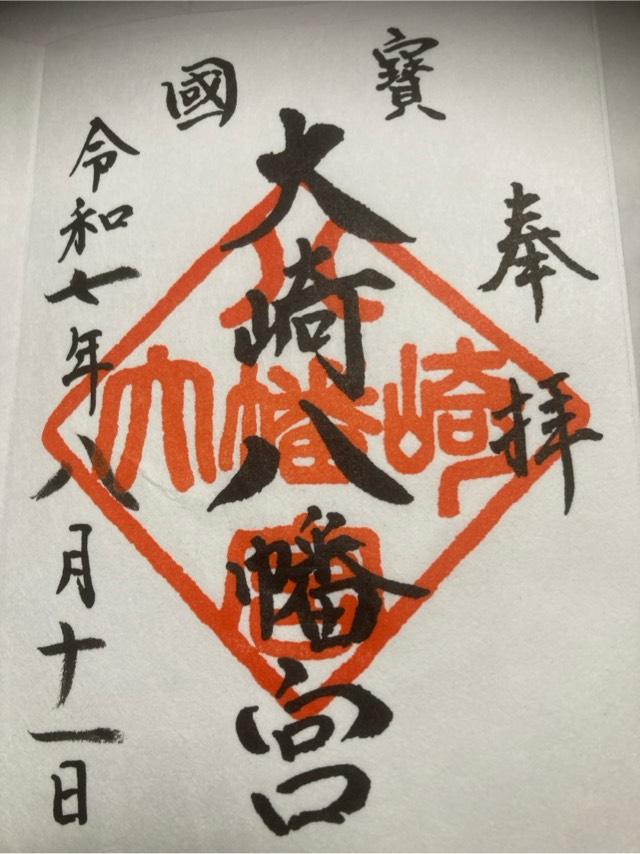 寶國
奉拝
大崎八幡宮
令和七年八月十一日
八
大幡崎
宮